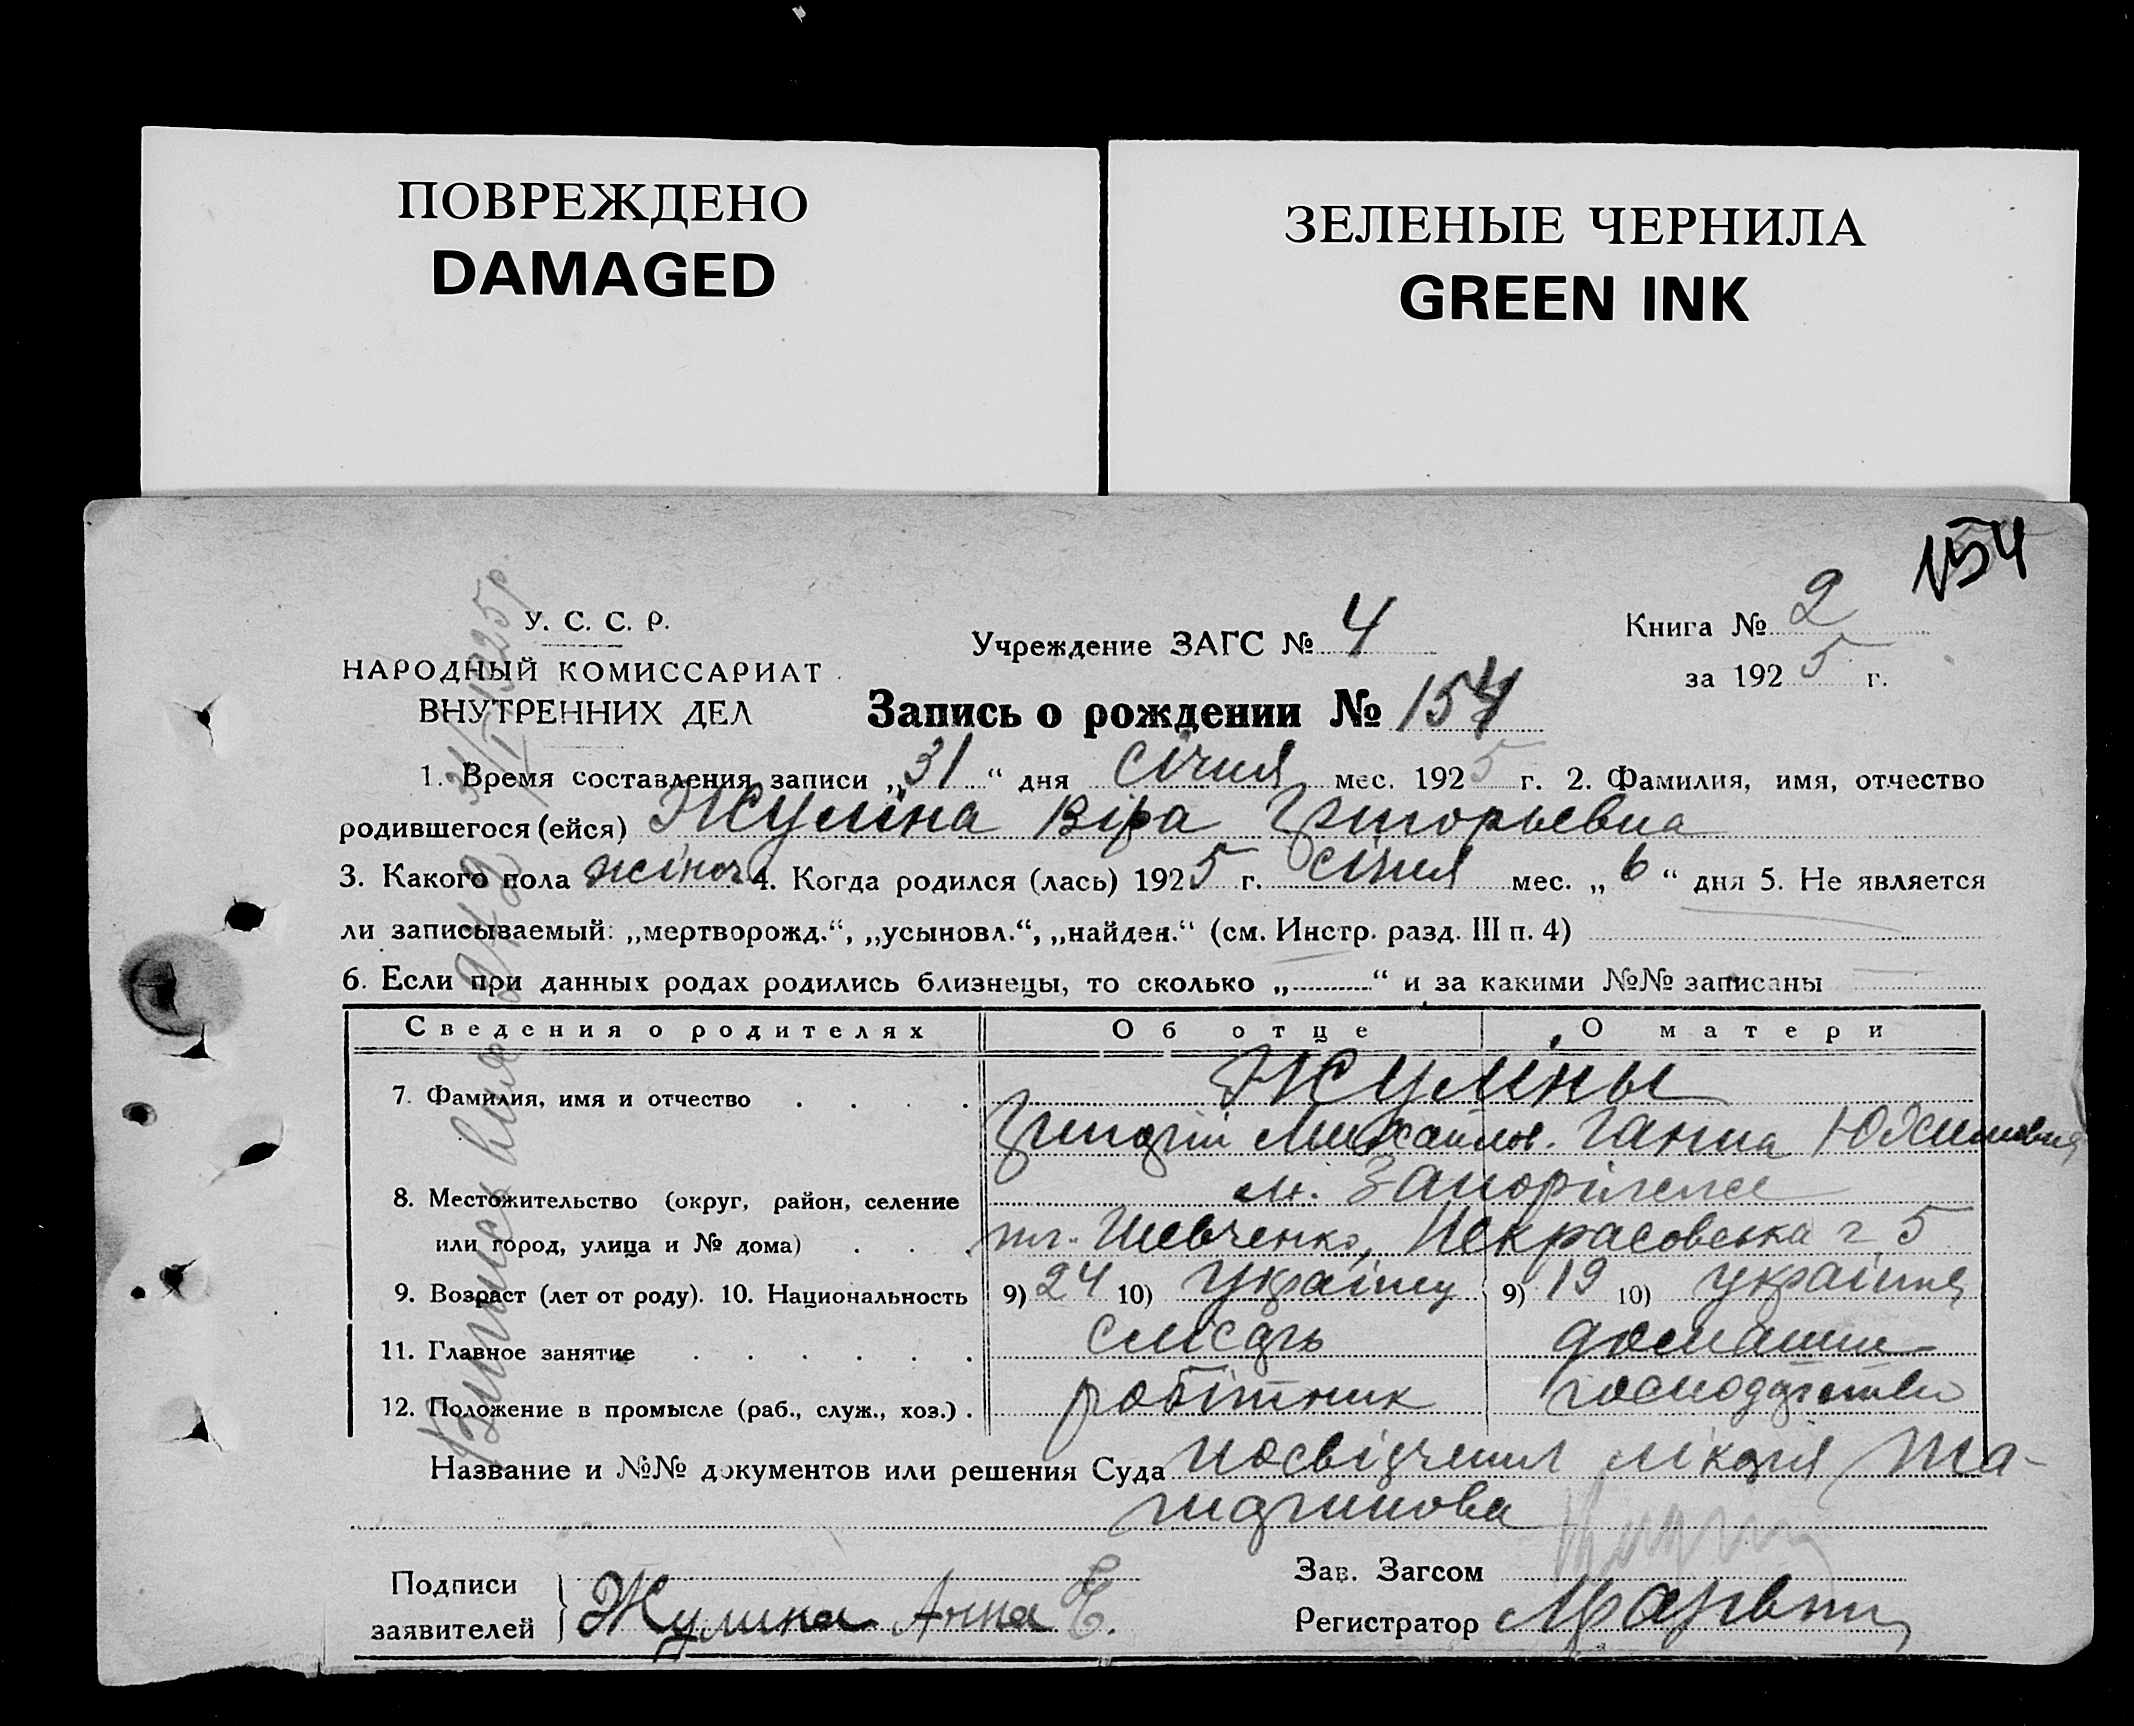 ПОВРЕЖДЕНО
DAMAGED
ЗЕЛЕНЫЕ ЧЕРНИЛА
GREEN INK
154
У. С. С. Р.
НАРОДНЫЙ КОМИССАРИАТ
ВНУТРЕННИХ ДЕЛ
Учреждение ЗАГС № 4
Книга № 2
за 1925 г.
Запись о рождении № 154
1. Время составления записи „31“ дня січня мес. 1925 г. 2. Фамилия, имя, отчество
родившегося (ейся) Жуліна Віра Григорьевна
3. Какого пола жіноч 4. Когда родился (лась) 1925 г. січня мес. „6“ дня 5. Не является
ли записываемый: „мертворожд.“, „усыновл.“, „найден.“ (см. Инстр. разд. III п. 4)
6. Если при данных родах родились близнецы, то сколько „ “ и за какими №№ записаны
Сведения о родителях Об отце О матери
7. Фамилия, имя и отчество Жуліны
Григорій Михайлов. Ганна Юхимовна
8. Местожительство (округ, район, селение м. Запоріжже
или город, улица и № дома) пл. Шевченко, Некрасовська 5
9. Возраст (лет от роду). 10. Национальность 9) 24 10) Українц 9) 19 10) україн
11. Главное занятие слюсарь домашне
12. Положение в промысле (раб., служ., хоз.) робітник господарство
Название и №№ документов или решения Суда посвідчення лікаря
Подписи
заявителей Жулина Анна Е.
Зав. Загсом
Регистратор
31/I 1925 р.